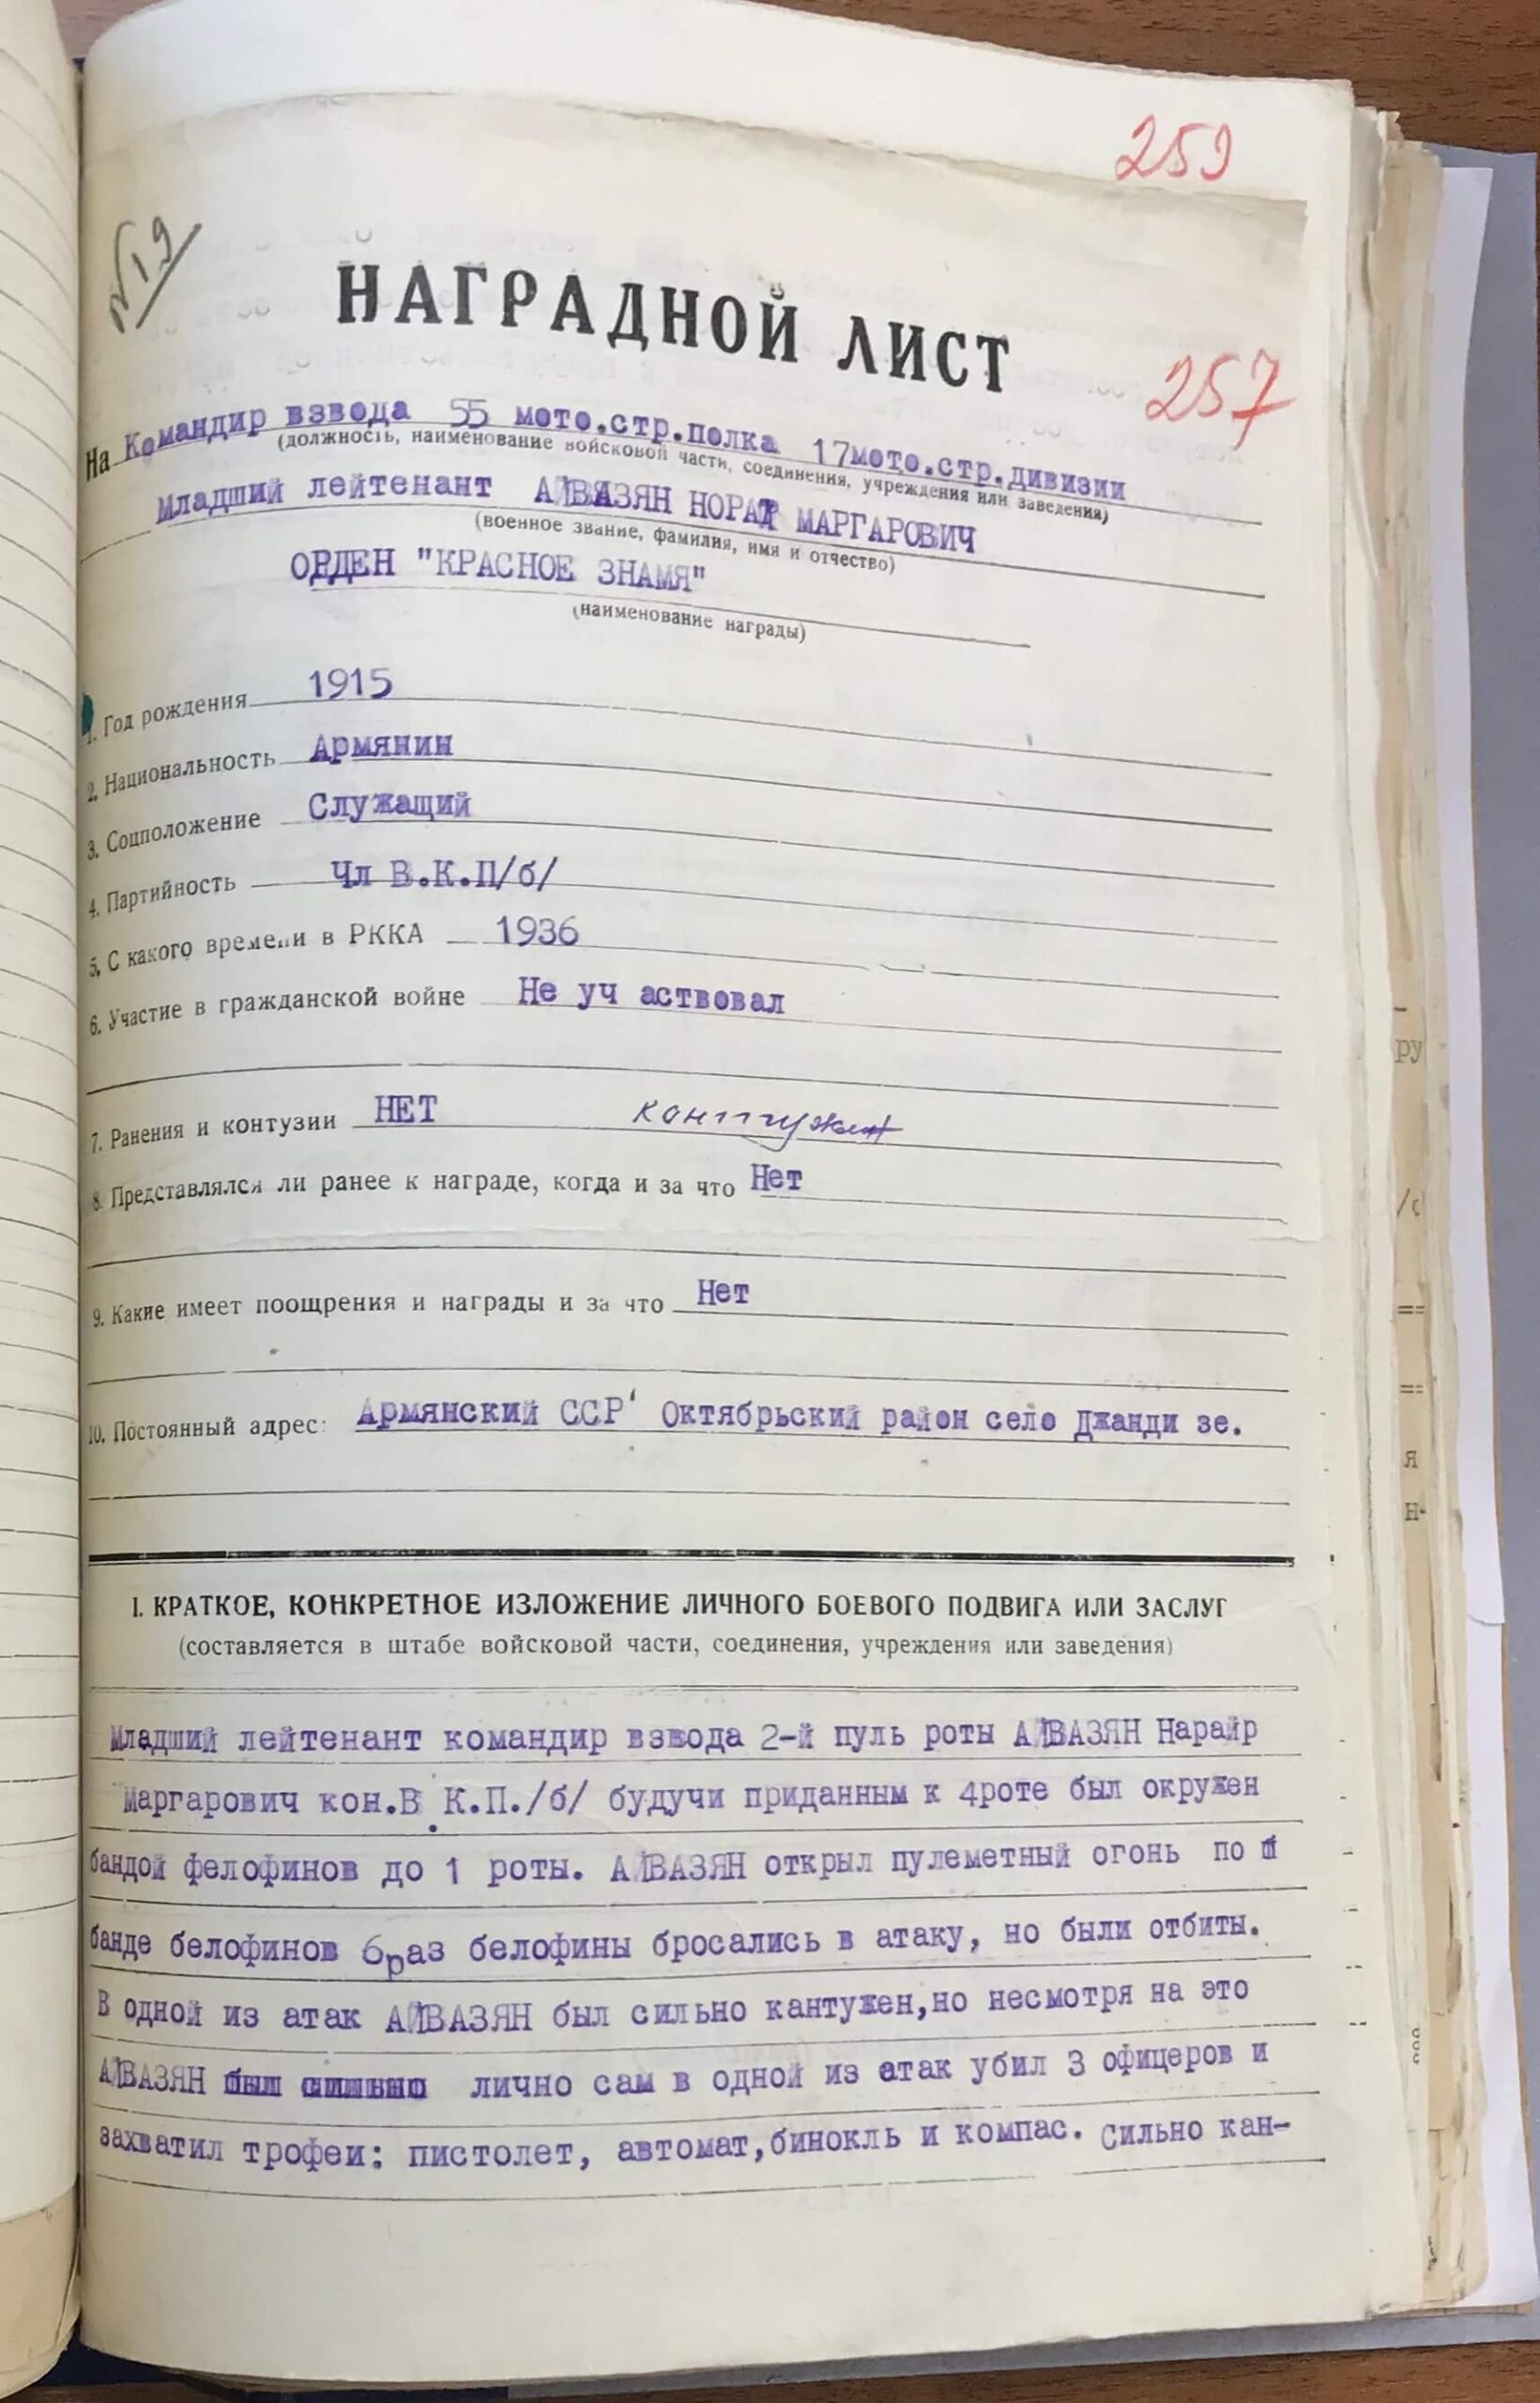 259
№19
НАГРАДНОЙ ЛИСТ
257
На Командир взвода 55 мото.стр.полка 17мото.стр.дивизии
(должность, наименование войсковой части, соединения, учреждения или заведения)
Младший лейтенант АЙВАЗЯН НОРАЙР МАРГАРОВИЧ
(военное звание, фамилия, имя и отчество)
ОРДЕН "КРАСНОЕ ЗНАМЯ"
(наименование награды)
1. Год рождения 1915
2. Национальность Армянин
3. Соцположение Служащий
4. Партийность Чл В.К.П/б/
5. С какого времени в РККА 1936
6. Участие в гражданской войне Не уч аствовал
7. Ранения и контузии НЕТ контужен
8. Представлялся ли ранее к награде, когда и за что Нет
9. Какие имеет поощрения и награды и за что Нет
10. Постоянный адрес: Армянский ССР' Октябрьский район село Джанди зе.
I. КРАТКОЕ, КОНКРЕТНОЕ ИЗЛОЖЕНИЕ ЛИЧНОГО БОЕВОГО ПОДВИГА ИЛИ ЗАСЛУГ
(составляется в штабе войсковой части, соединения, учреждения или заведения)
Младший лейтенант командир взвода 2-й пуль роты АЙВАЗЯН Нарайр
Маргарович кон.В К.П./б/ будучи приданным к 4роте был окружен
бандой фелофинов до 1 роты. АЙВАЗЯН открыл пулеметный огонь по
банде белофинов 6раз белофины бросались в атаку, но были отбиты.
В одной из атак АЙВАЗЯН был сильно кантужен,но несмотря на это
АЙВАЗЯН был сильно лично сам в одной из атак убил 3 офицеров и
захватил трофеи: пистолет, автомат,бинокль и компас. Сильно кан-
ру
/с
==
==
я
н-